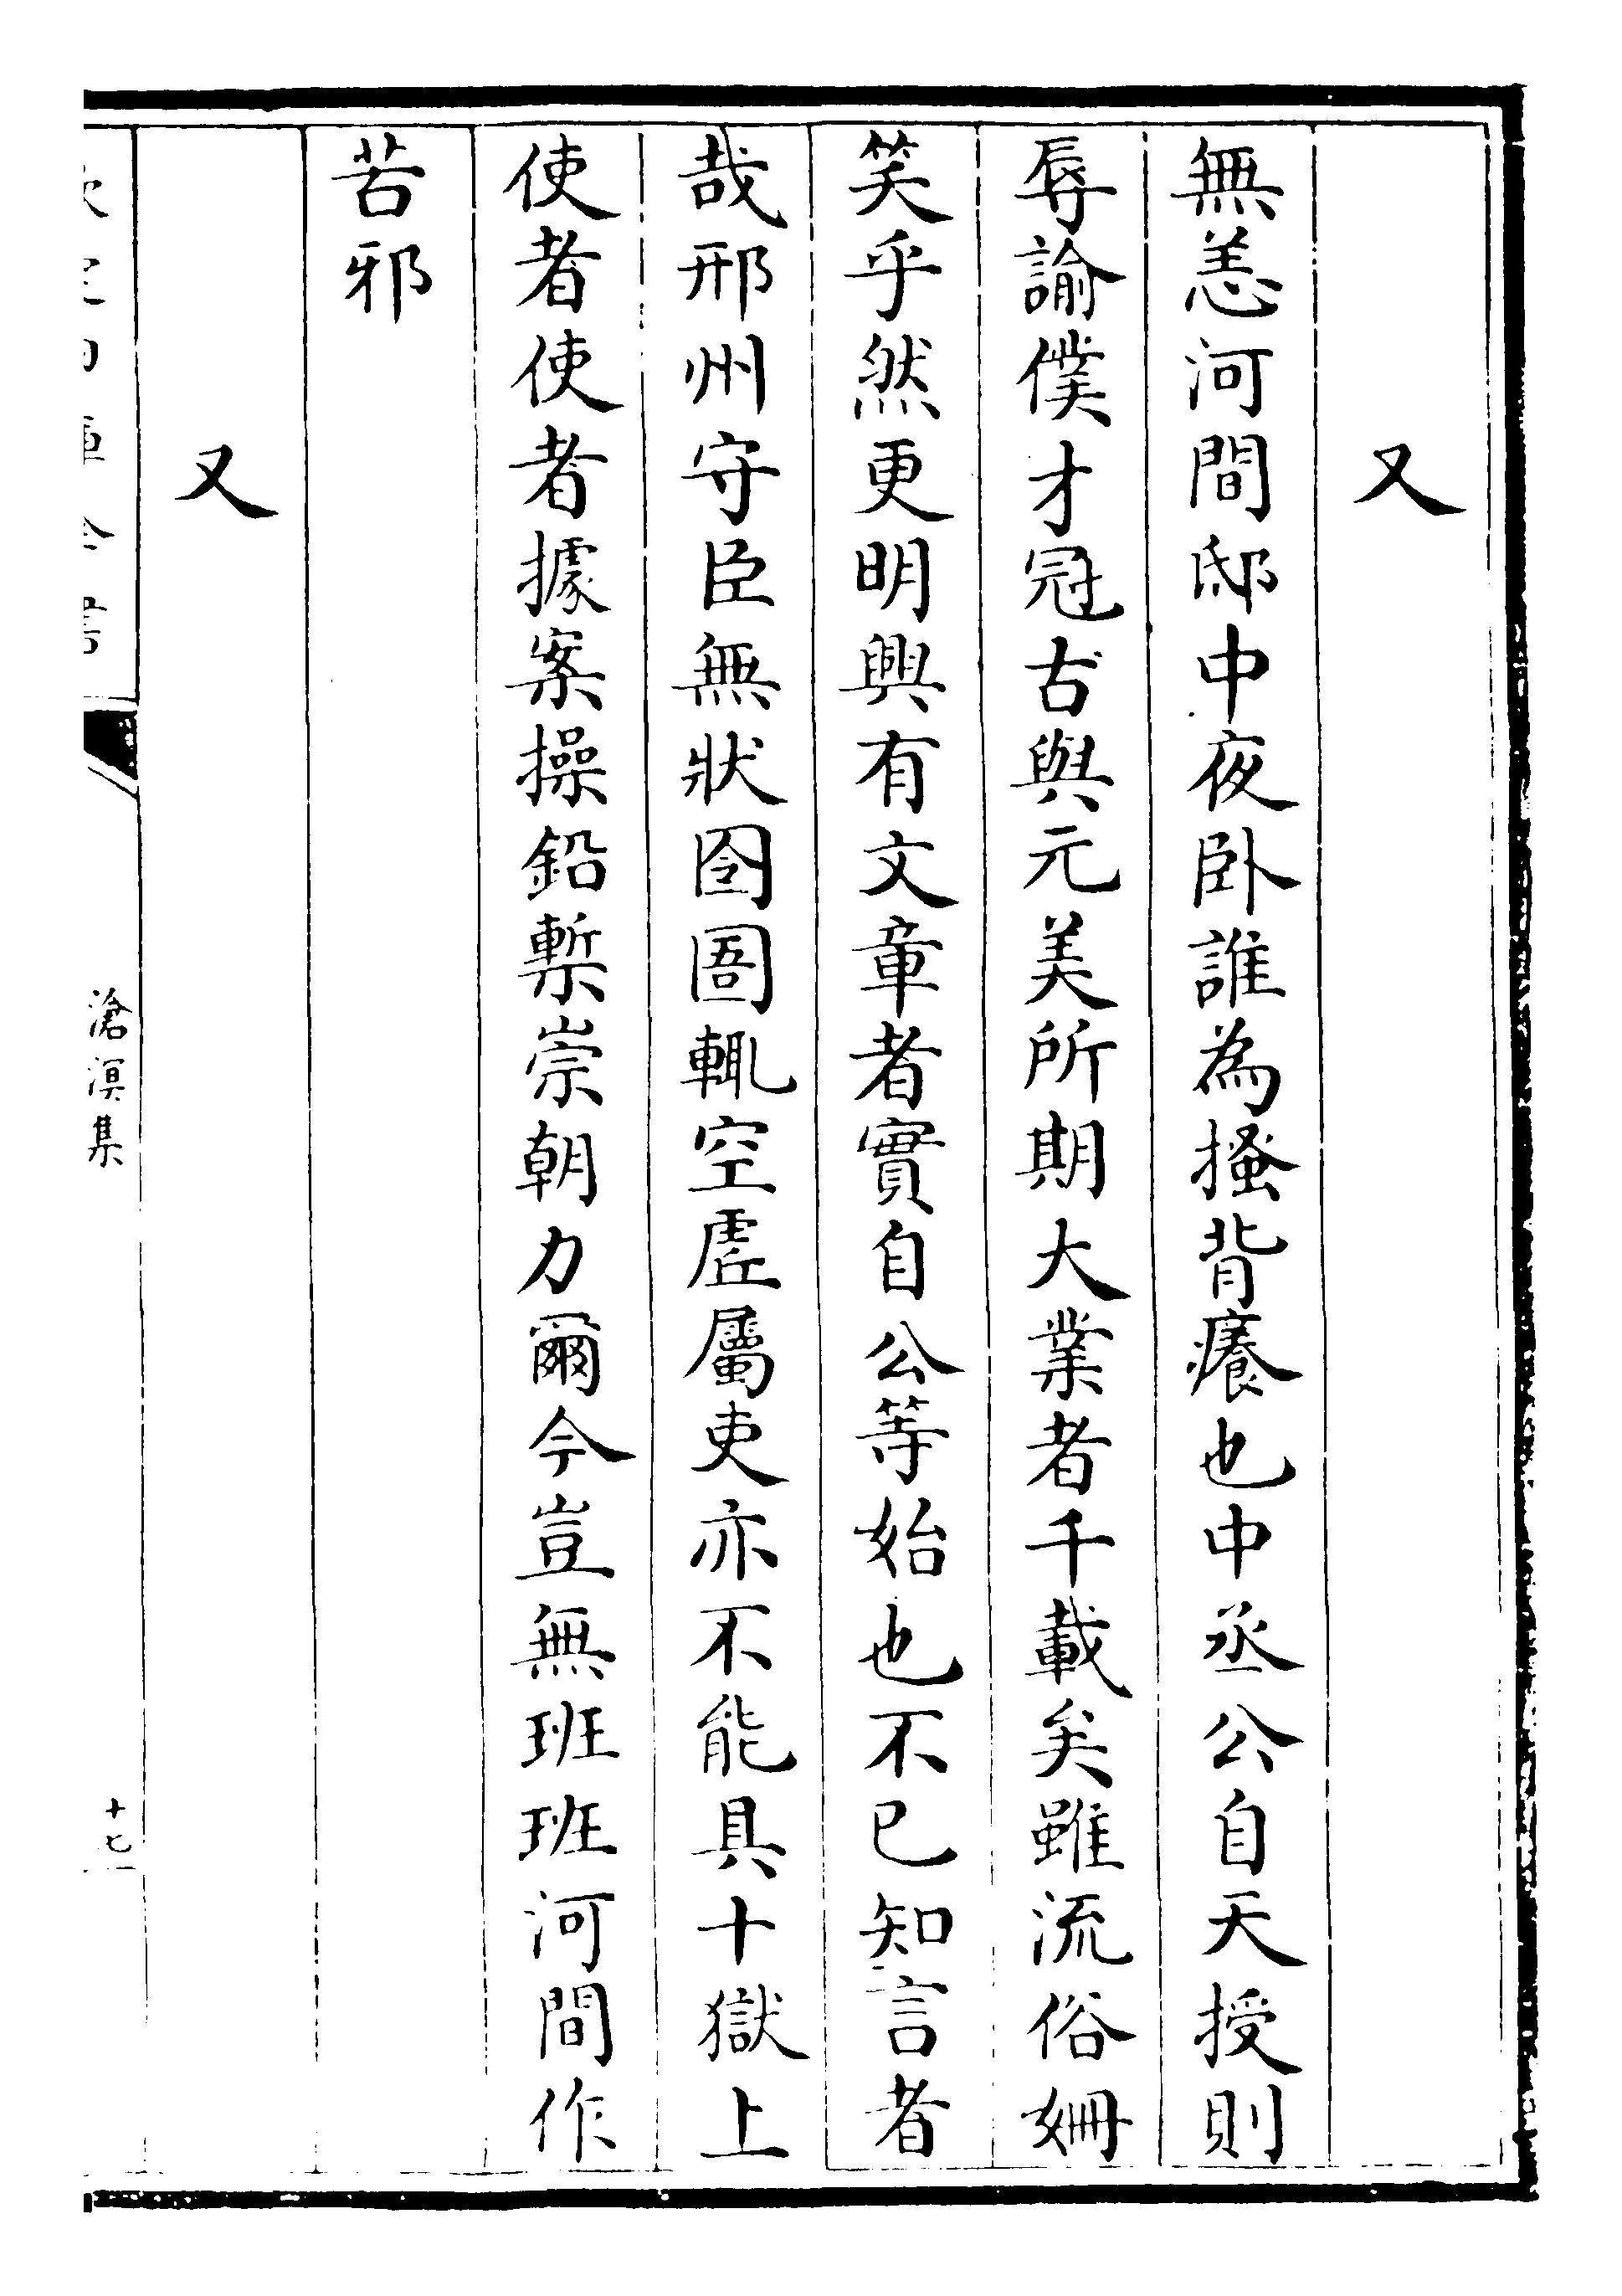 又
無恙河間邸中夜臥誰為搔背癢也中丞公自天授則
辱諭僕才冠古與元美所期大業者千載矣雖流俗姍
笑乎然更明興有文章者實自公等始也不已知言者
哉邢州守臣無狀囹圄輒空虛屬吏亦不能具十獄上
使者使者據案操鉛槧崇朝力爾今豈無班班河間作
苦邪
又
滄溟集
十七